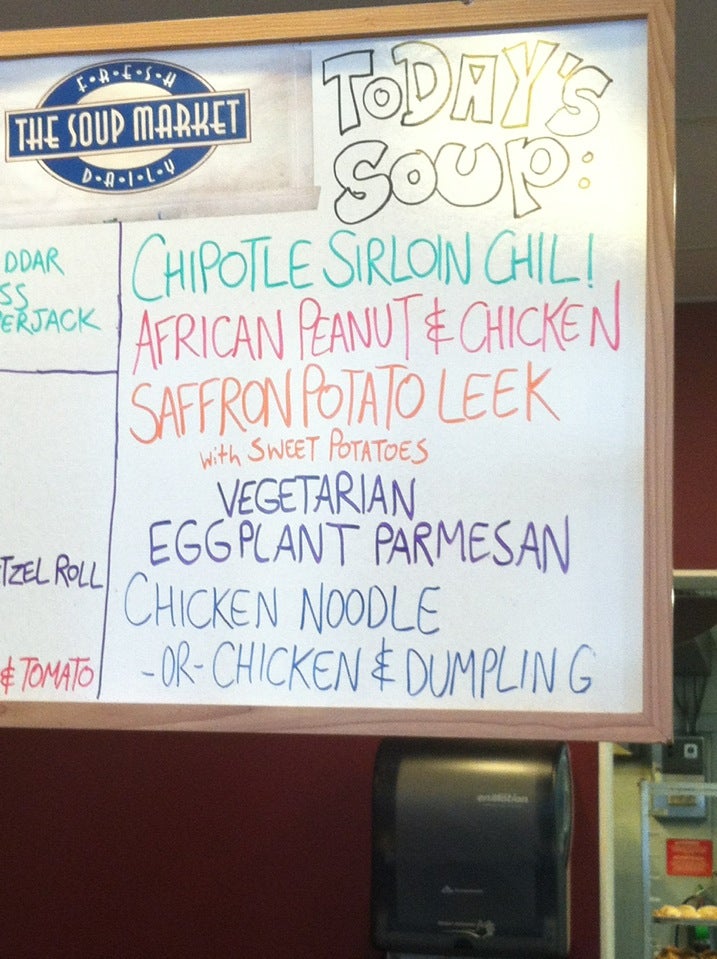 F•R•E•S•H
THE SOUP MARKET
D•A•I•L•Y
TODAY'S
SOUP:
DDAR
SS
ERJACK
TZEL ROLL
& TOMATO
CHIPOTLE SIRLOIN CHILI
AFRICAN PEANUT & CHICKEN
SAFFRON POTATO LEEK
with SWEET POTATOES
VEGETARIAN
EGGPLANT PARMESAN
CHICKEN NOODLE
-OR- CHICKEN & DUMPLING
enMotion